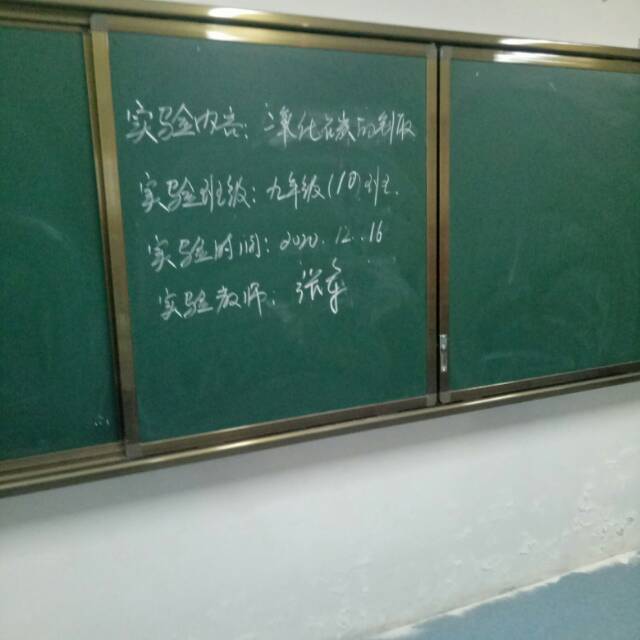 实验内容：二氧化碳的制取
实验班级：九年级(10)班.
实验时间：2020.12.16
实验教师：张